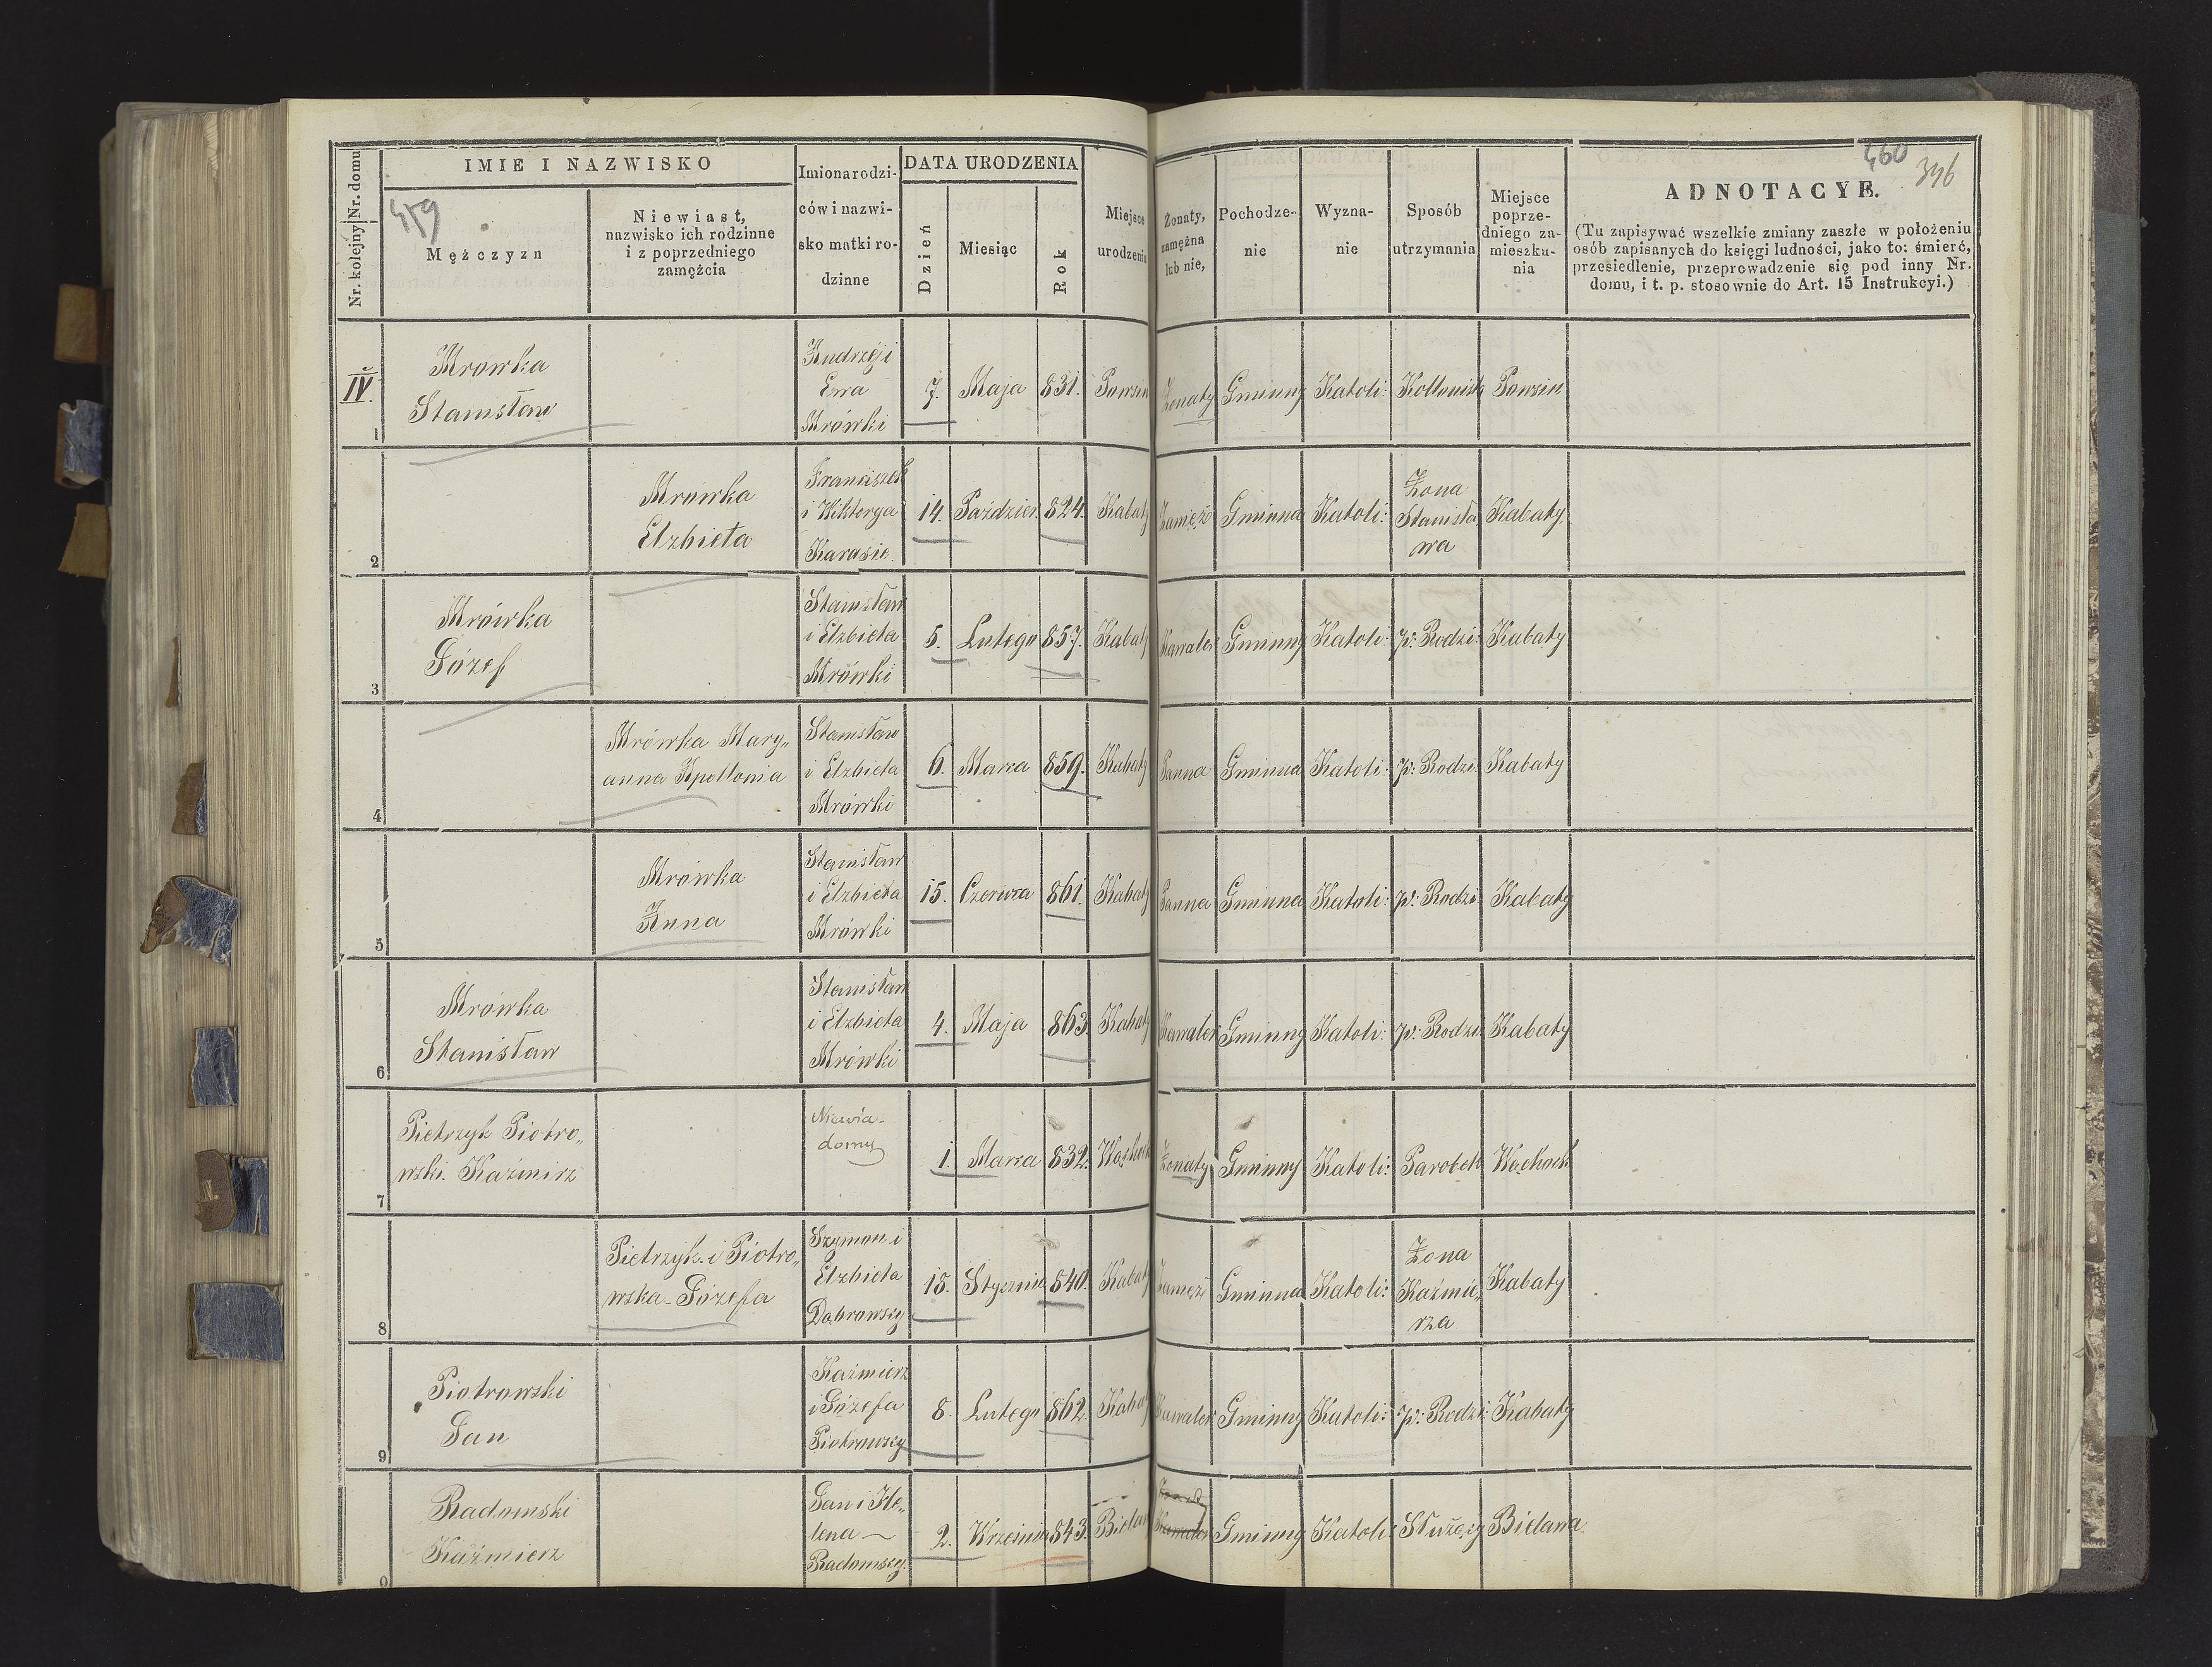 459
460
396
Nr. kolejny Nr. domu
IMIE I NAZWISKO
Mężczyzn
Niewiast,
nazwisko ich rodzinne
i z poprzedniego
zamężcia
Imiona rodzi-
ców i nazwi-
sko matki ro-
dzinne
DATA URODZENIA
Dzień
Miesiąc
Rok
Miejsce
urodzenia
Żonaty,
zamężna
lub nie,
Pochodze-
nie
Wyzna-
nie
Sposób
utrzymania
Miejsce
poprze-
dniego za-
mieszka-
nia
ADNOTACYE.
(Tu zapisywać wszelkie zmiany zaszłe w położeniu
osób zapisanych do księgi ludności, jako to: śmierć,
przesiedlenie, przeprowadzenie się pod inny Nr.
domu, i t. p. stosownie do Art. 15 Instrukcyi.)
IV.
1
Mrówka
Stanisław
Andrzéj i
Ewa
Mrówki
7. Maja 831. Powsin Żonaty Gminny Katoli: Kollonista Powsin
2
Mrówka
Elzbieta
Franciszek
i Wiktorya
Karasie
14. Paździer. 824. Kabaty Zamęż Gminna Katoli:
Żona
Stanisła
wa
Kabaty
3
Mrówka
Józef
Stanisław
i Elzbieta
Mrówki
5. Lutego 857. Kabaty Kawaler Gminny Katoli: p: Rodzi: Kabaty
4
Mrówka Mary„
anna Apollonia
Stanisław
i Elzbieta
Mrówki
6. Marca 859. Kabaty Panna Gminna Katoli: p: Rodzi: Kabaty
5
Mrówka
Anna
Stanisław
i Elzbieta
Mrówki
15. Czerwca 861. Kabaty Panna Gminna Katoli: p: Rodzi: Kabaty
6
Mrówka
Stanisław
Stanisław
i Elzbieta
Mrówki
4. Maja 863. Kabaty Kawaler Gminny Katoli: p: Rodzi: Kabaty
7
Pietrzyk Piotro„
wski. Kaźmirz
Niewia-
domy
1. Marca 832. Wąchock Żonaty Gminny Katoli: Parobek Wąchock
8
Pietrzyk i Piotro„
wska Józefa
Szymon i
Elzbieta
Dąbrowscy
18. Stycznia 840. Kabaty Zamęż Gminna Katoli:
Żona
Kaźmie„
rza
Kabaty
9
Piotrowski
Jan
Kaźmierz
i Józefa
Piotrowscy
8. Lutego 862. Kabaty Kawaler Gminny Katoli: p: Rodzi: Kabaty
0
Radomski
Kaźmierz
Jan i He„
lena
Radomscy
2. Września 843. Bielawa Kawaler Gminny Katoli: Służący Bielawa